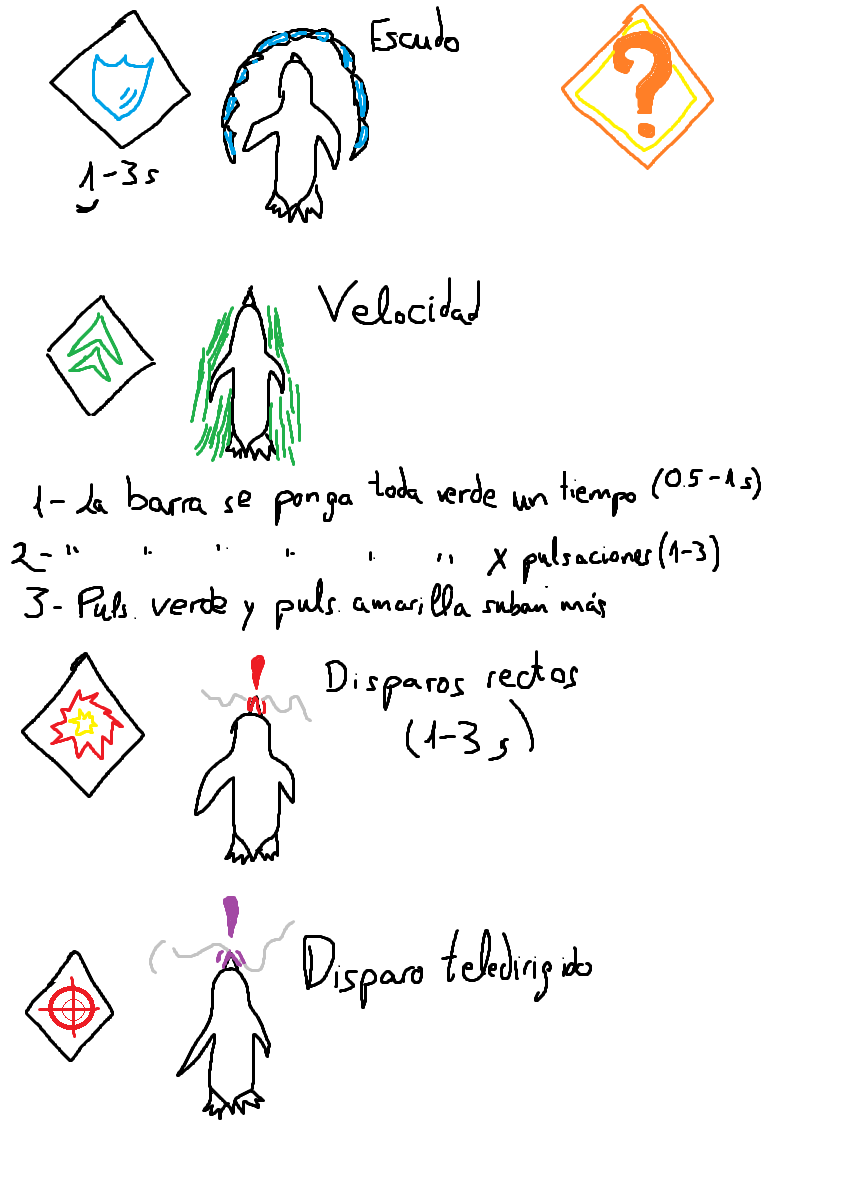 Escudo
?
1-3s
Velocidad
1- La barra se ponga toda verde un tiempo (0.5-1s)
2- " " " " " " X pulsaciones (1-3)
3- Puls. verde y puls. amarilla suban más
Disparos rectos
(1-3s)
Disparo teledirigido